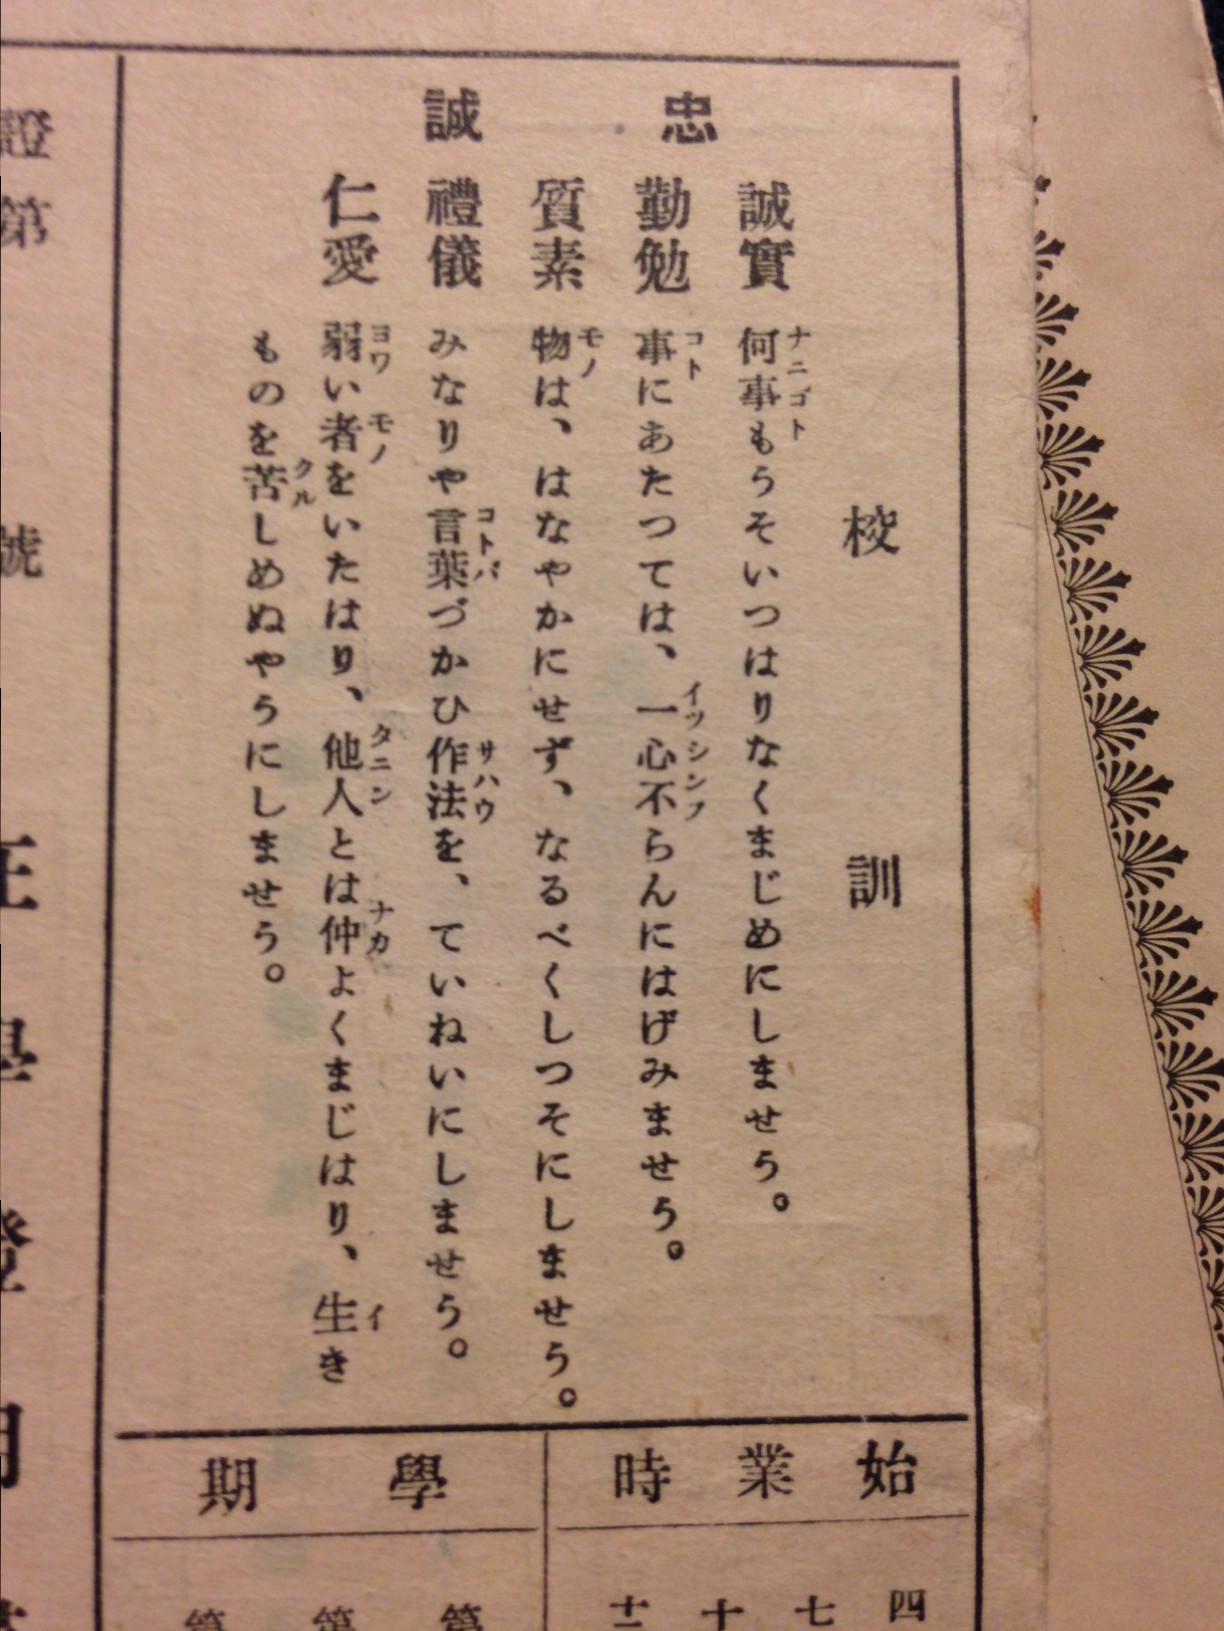 校訓
忠誠
誠實 何事もうそいつはりなくまじめにしませう。
ナニゴト
勤勉 事にあたつては、一心不らんにはげみませう。
コト イツシンフ
質素 物は、はなやかにせず、なるべくしつそにしませう。
モノ
禮儀 みなりや言葉づかひ作法を、ていねいにしませう。
コトバ サハウ
仁愛 弱い者をいたはり、他人とは仲よくまじはり、生き
ヨワ モノ タニン ナカ イ
ものを苦しめぬやうにしませう。
クル
始業時
學期
四
七
十
十一
第
第
第
證第 號